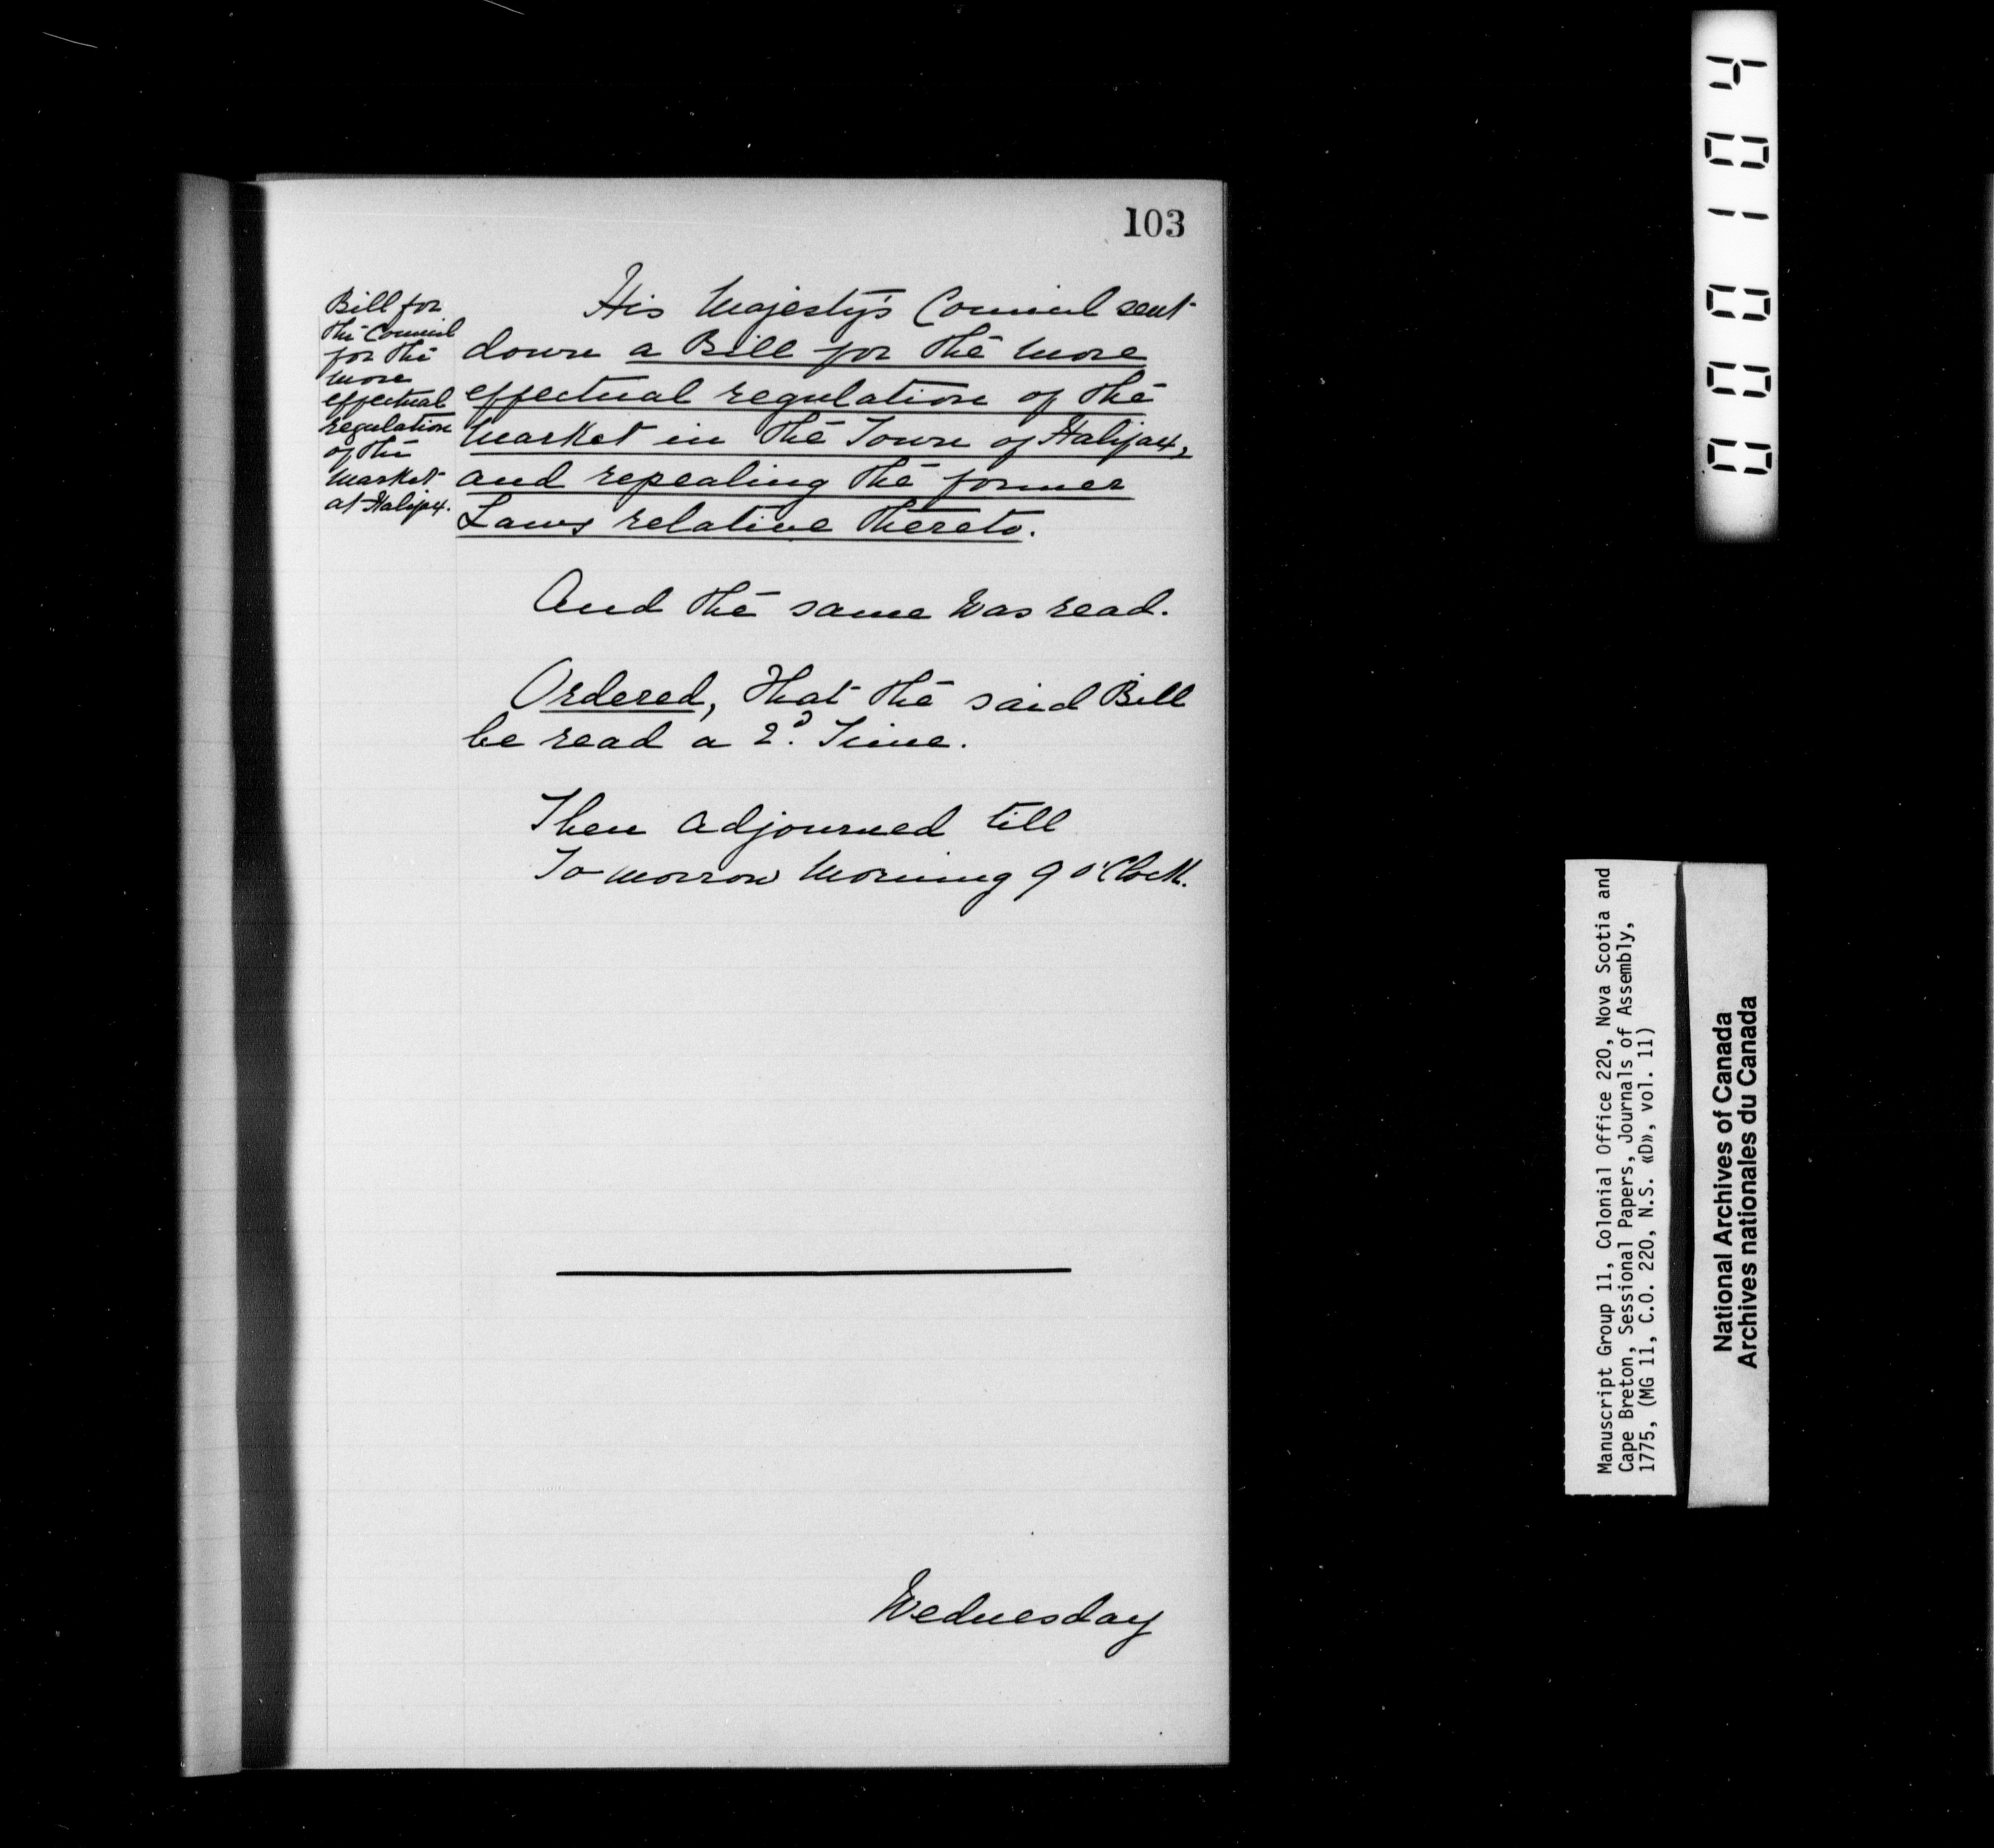 103
Bill for
the Council
for the
more
effectual
regulation
of the
Market
at Halifax.
His Majesty's Council sent
down a Bill for the more
effectual regulation of the
Market in the Town of Halifax,
and repealing the former
Laws relative thereto.
And the same was read.
Ordered, That the said Bill
be read a 2d. Time.
Then adjourned till
To-morrow Morning 9 o'Clock.
Wednesday
000104
Manuscript Group 11, Colonial Office 220, Nova Scotia and
Cape Breton, Sessional Papers, Journals of Assembly,
1775, (MG 11, C.O. 220, N.S. «D», vol. 11)
National Archives of Canada
Archives nationales du Canada